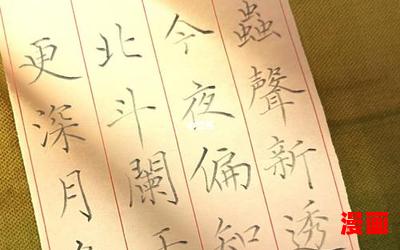 更深月
北斗闌干
今夜偏知
蟲聲新透